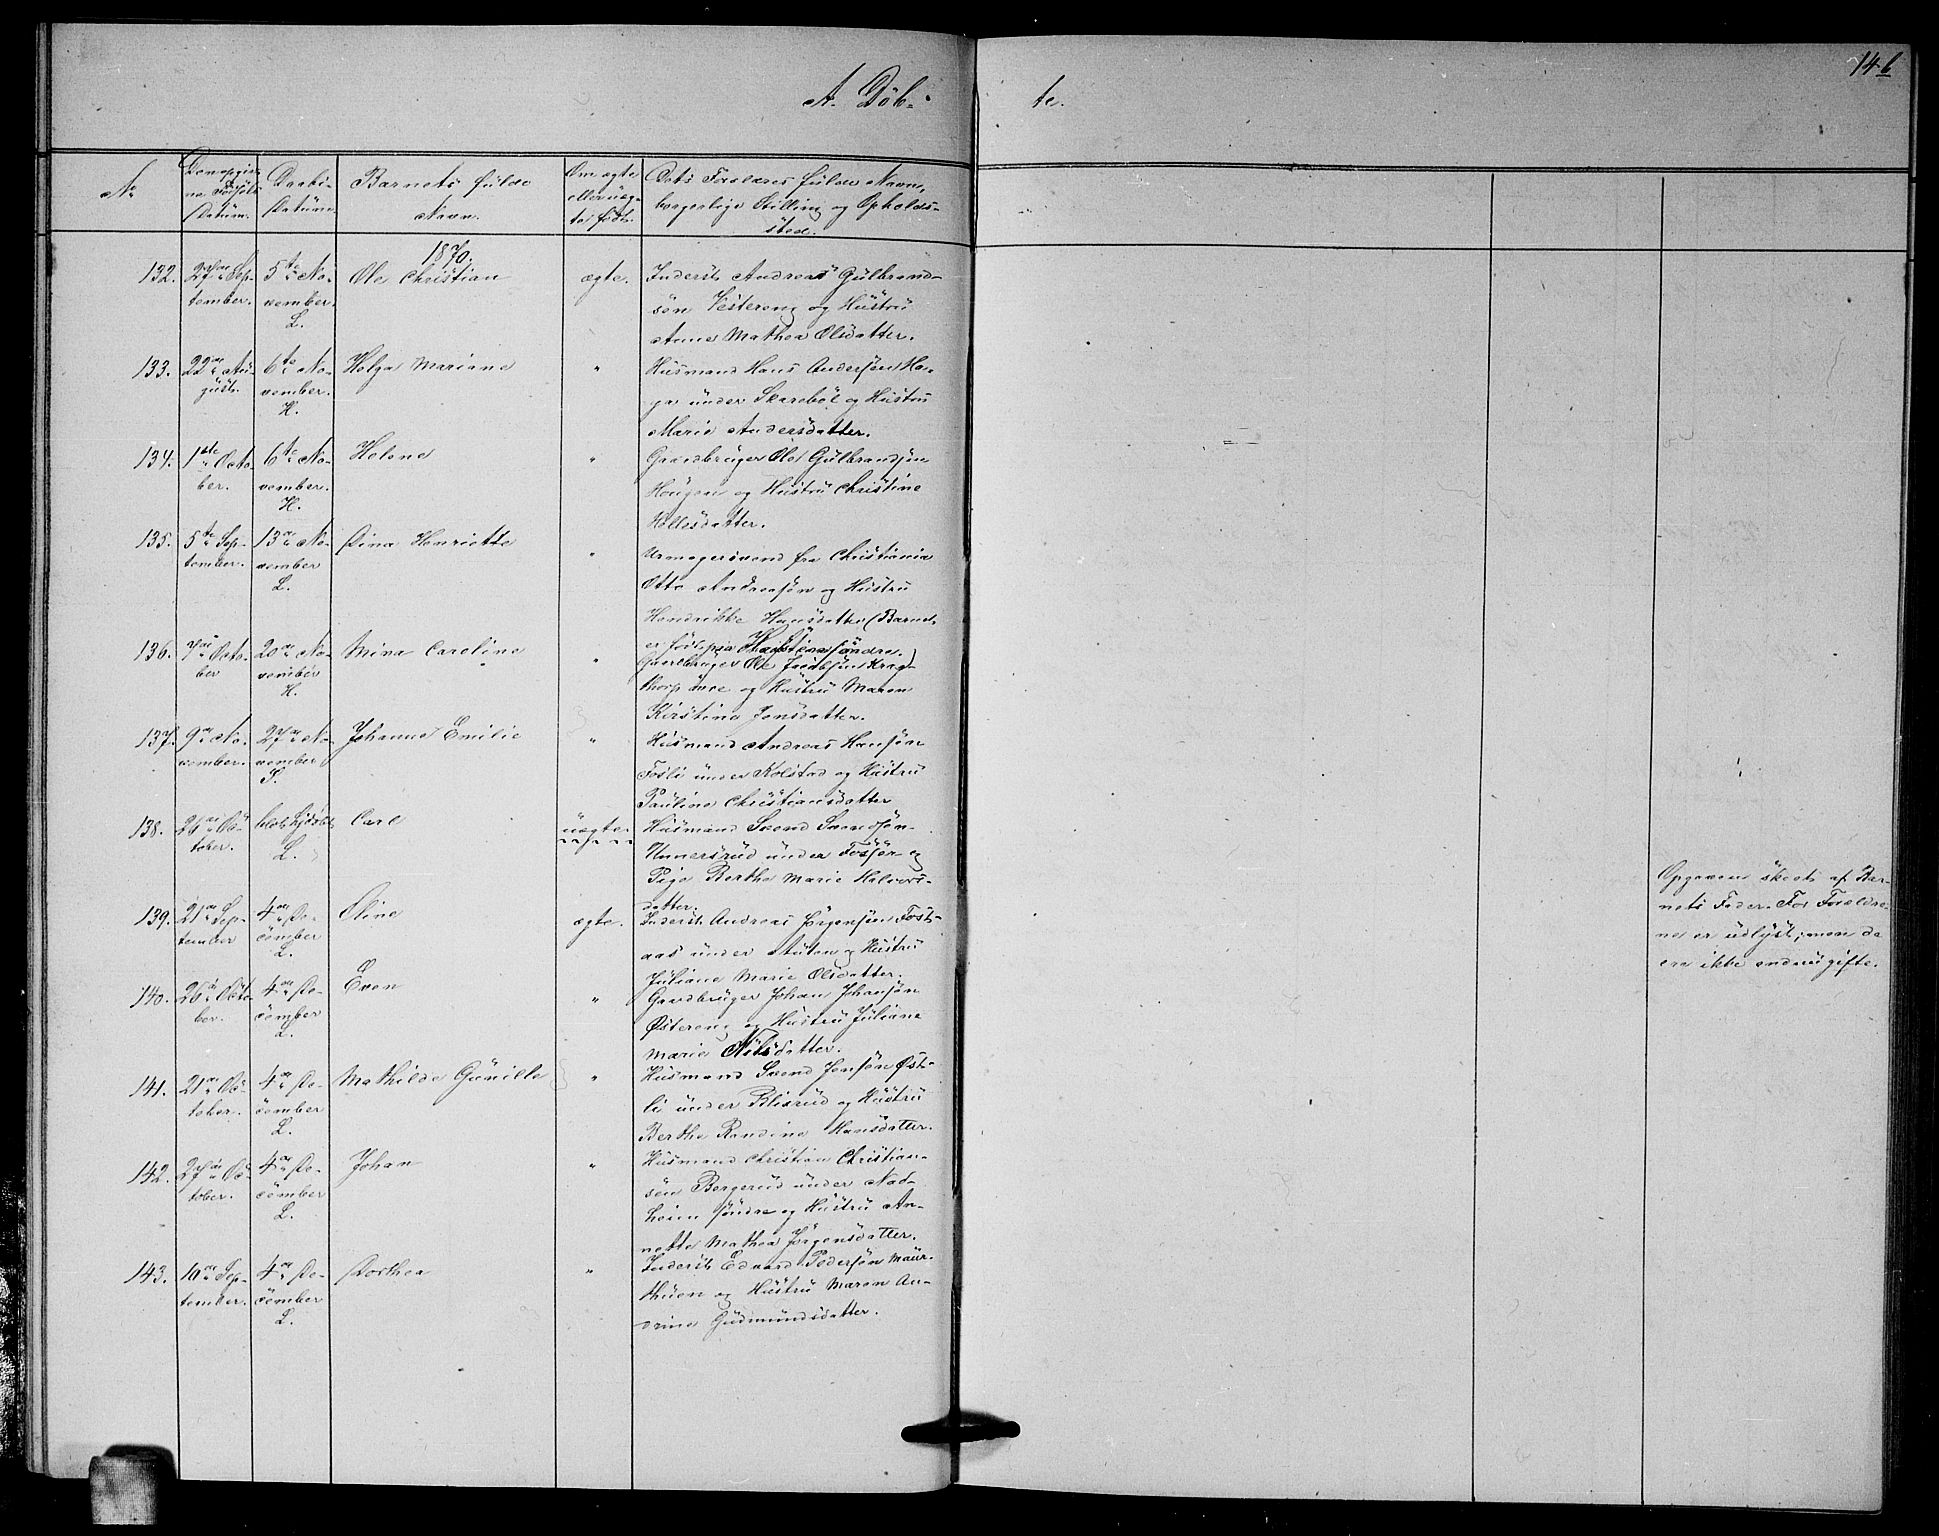 14b
A. Döb-
te.
No
Den opgiv-
ne Fødsels
Datum.
Daabs-
Datum.
Barnets fulde
Navn.
Om ægte
eller uæg-
te født.
Dets Forældres fulde Navn,
borgerlige Stilling og Opholds-
sted.
1870.
132.
27de Sep-
tember.
5te No-
vember.
L.
Ole Christian
ægte.
Inderst Andreas Gulbrand-
søn Vestereng og Hustru
Anne Mathea Olsdatter.
133.
22de Au-
gust.
6te No-
vember.
H.
Helga Mariane
"
Husmand Hans Andersøn Ha-
ga under Skarebøl og Hustru
Marie Andersdatter.
134.
1ste Octo-
ber.
6te No-
vember.
H.
Helene
"
Gaardbruger Ole Gulbrandsøn
Haugen og Hustru Christine
Hellesdatter.
135.
5te Sep-
tember.
13de No-
vember
L.
Dina Henriette
"
Urmagersvend fra Christiania
Otto Andreasøn og Hustru
Hendrikke Hansdatter (Barnet
er født paa søndre.)
136.
7de Octo-
ber
20de No-
vember
H.
Mina Caroline
"
Gaardbruger Ole Jacobsøn Krag-
thorp øvre og Hustru Maren
Kirstine Jensdatter.
137.
9de No-
vember.
27de No-
vember
S.
Johanne Emilie
"
Husmand Andreas Hansøn
Fosli under Kolstad og Hustru
Pauline Christiansdatter
138.
26de Oc-
tober.
L.
Carl
uægte
Husmand Svend Svendsøn
Unnersrud under Fossør og
Pige Berthe Marie Halvors-
datter.
139.
21de Sep-
tember
4de De-
cember
L.
Oline
ægte.
Inderst Andreas Jørgensøn Fost-
aas under Auten og Hustru
Juliane Marie Olsdatter.
Opgaven skeet af Bar-
nets Fader. For Forældre-
ne er udlyst; men de
ere ikke endnu gifte.
140.
26de Octo-
ber.
4de De-
cember
L.
Even
"
Gaardbruger Johan Johansøn
Østereng og Hustru Juliane
Marie Nilsdatter.
141.
21de Oc-
tober.
4de De-
cember
L.
Mathilde Gunille
"
Husmand Svend Jensøn Øst-
li under Blixrud og Hustru
Berthe Randine Hansdatter.
142.
27de Oc-
tober.
4de De-
cember
L.
Johan
"
Husmand Christian Christian-
søn Bergerud under Nad-
heim søndre og Hustru An-
nette Mathea Jørgensdatter.
143.
10de Sep-
tember.
4de De-
cember
L.
Dorthea
"
Inderst Edvard Pedersøn Maur-
thuen og Hustru Maren An-
drine Gudmundsdatter.